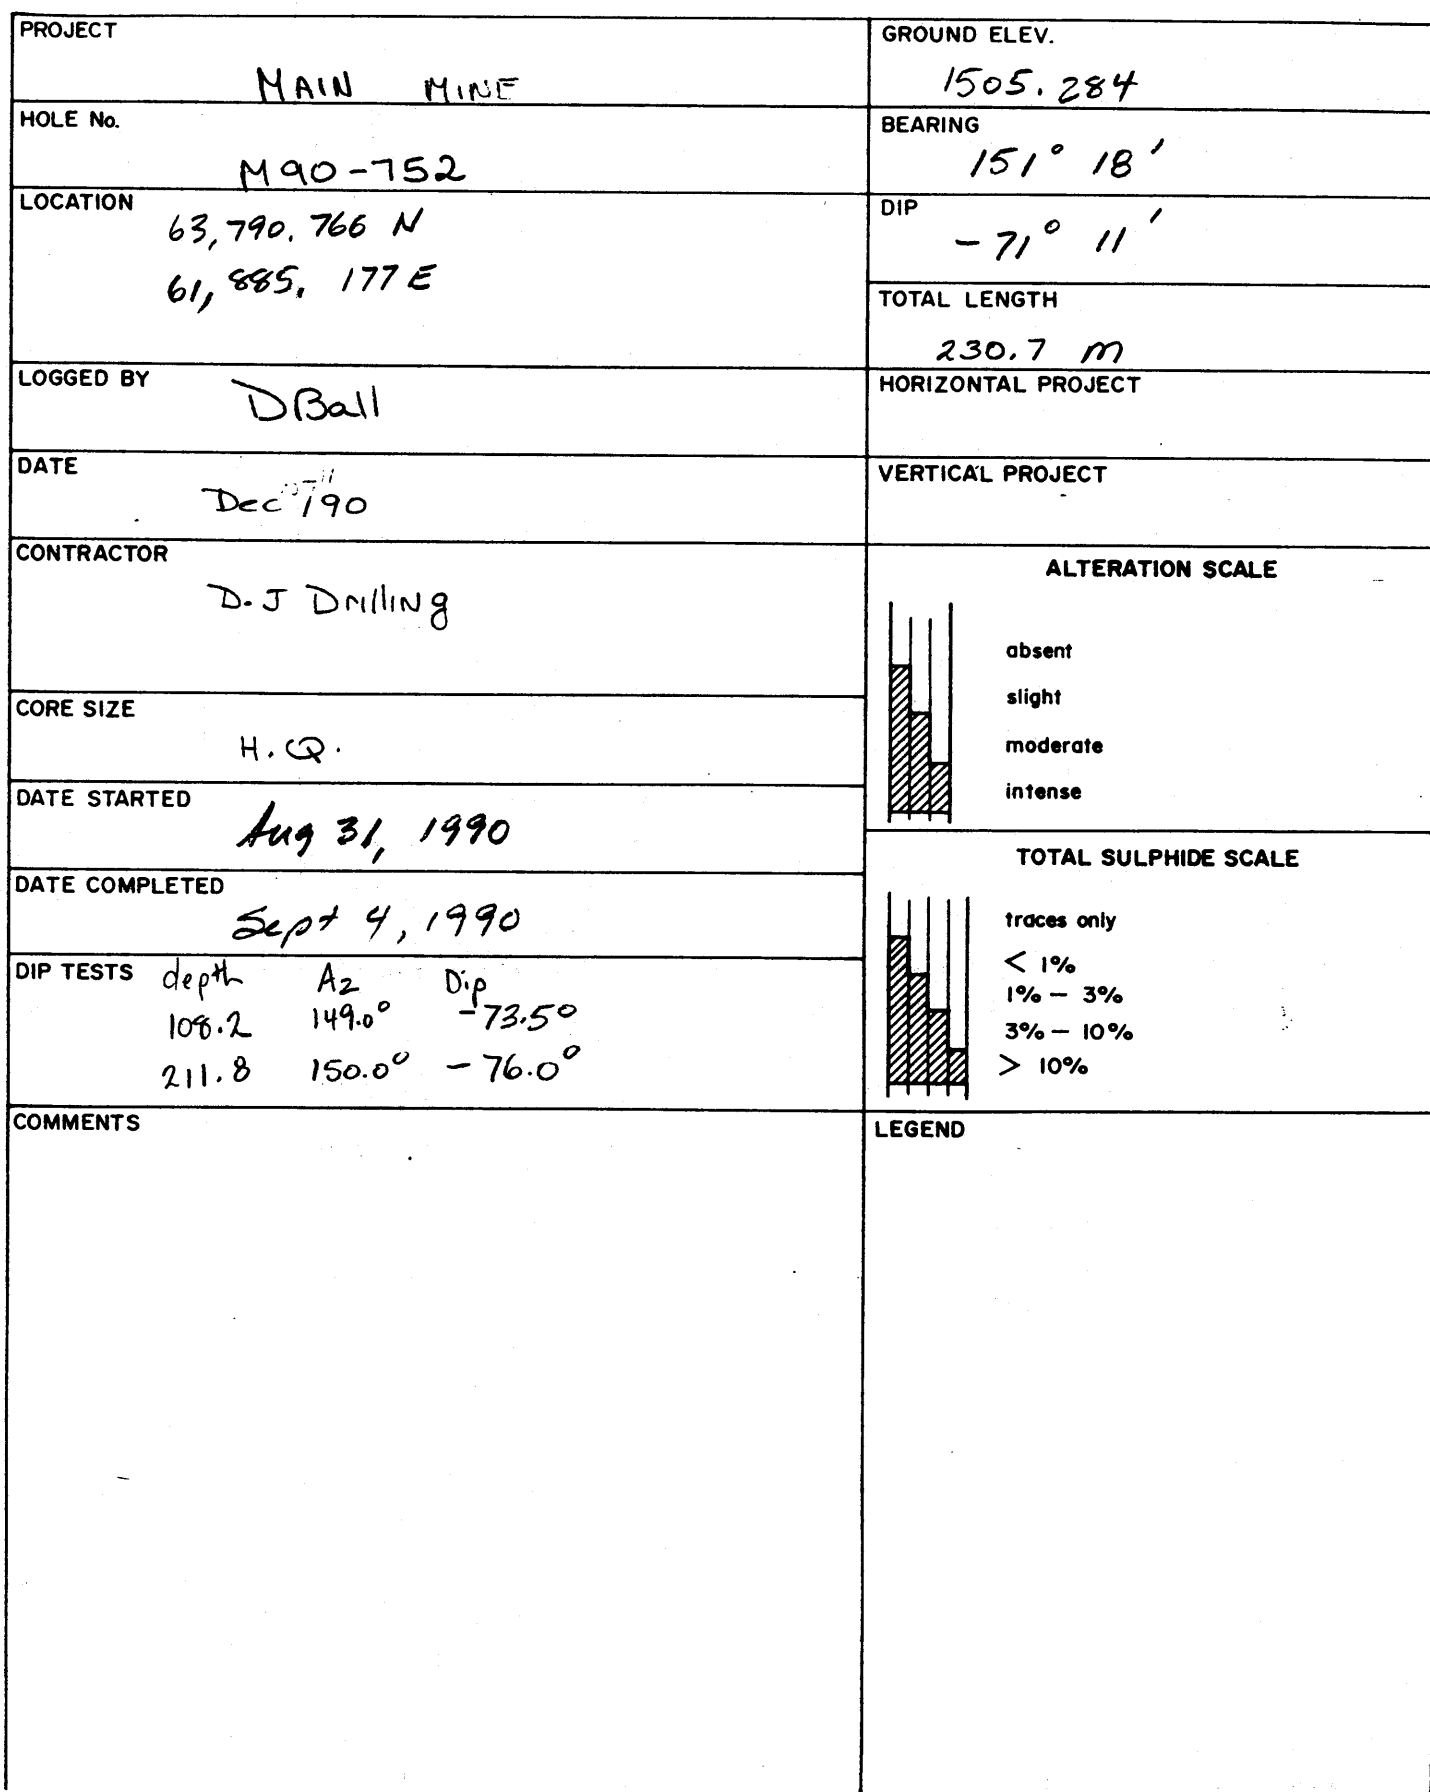 PROJECT
MAIN MINE
HOLE No.
M90-752
LOCATION
63,790.766 N
61,885.177 E
LOGGED BY
DBall
DATE
Dec /90
CONTRACTOR
D.J Drilling
CORE SIZE
H.Q.
DATE STARTED
Aug 31, 1990
DATE COMPLETED
Sept 4, 1990
DIP TESTS depth Az Dip
108.2 149.0° -73.5°
211.8 150.0° -76.0°
COMMENTS
GROUND ELEV.
1505.284
BEARING
151° 18'
DIP
-71° 11'
TOTAL LENGTH
230.7 m
HORIZONTAL PROJECT
VERTICAL PROJECT
ALTERATION SCALE
absent
slight
moderate
intense
TOTAL SULPHIDE SCALE
traces only
< 1%
1% - 3%
3% - 10%
> 10%
LEGEND